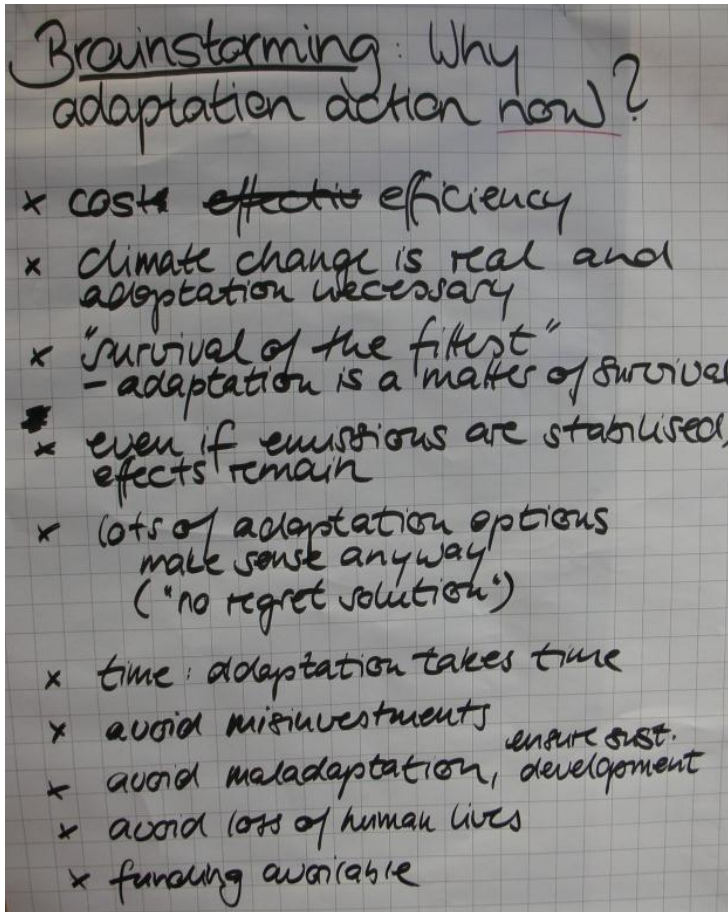 Brainstorming: Why
adaptation action now?
x cost effectiv efficiency
x climate change is real and
adaptation necessary
x "survival of the fittest"
- adaptation is a matter of survival
x even if emissions are stabilised,
effects remain
x lots of adaptation options
make sense anyway
("no regret solution")
x time: adaptation takes time
x avoid misinvestments
x avoid maladaptation, ensure sust.
development
x avoid loss of human lives
x funding available